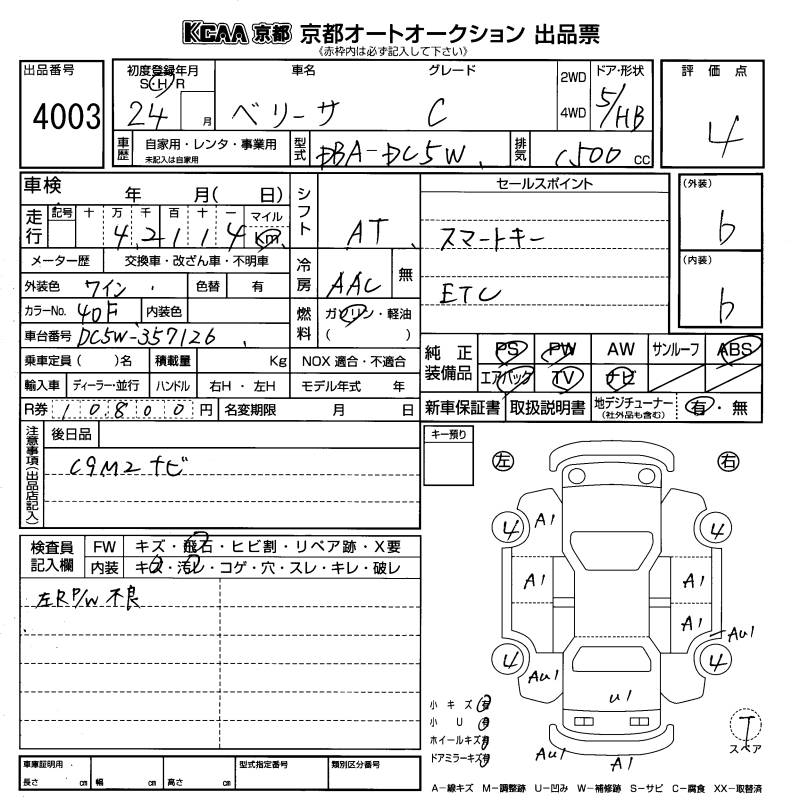 KCAA 京都 京都オートオークション 出品票
《赤枠内は必ず記入して下さい》
出品番号 初度登録年月 車名 グレード 2WD ドア・形状 評価点
S・H・R
4003 24 月 ベリーサ C 4WD 5/HB 4
車歴 自家用・レンタ・事業用 型式 DBA-DC5W 排気 1,500 cc
未記入は自家用
車検 年 月( 日) シフト AT セールスポイント (外装) b
走行 記号 十 万 千 百 十 一 マイル
4 2 1 1 4 km スマートキー
メーター歴 交換車・改ざん車・不明車 冷房 AAC 無 (内装) b
外装色 ワイン 色替 有 ETC
カラーNo. 40F 内装色 燃料 ガソリン・軽油
車台番号 DC5W-357126 ( )
乗車定員( )名 積載量 Kg NOX 適合・不適合 純正装備品 PS PW AW サンルーフ ABS
輸入車 ディーラー・並行 ハンドル 右H・左H モデル年式 年 エアバッグ TV ナビ
R券 10800 円 名変期限 月 日 新車保証書 取扱説明書 地デジチューナー (社外品も含む) 有・無
注意事項(出品店記入) 後日品 キー預り 左 右
C9M2 ナビ
検査員記入欄 FW キズ・飛石・ヒビ割・リペア跡・X要
内装 キズ・汚レ・コゲ・穴・スレ・キレ・破レ
左R P/W 不良
4 A1 4
A1 A1
A1 AU1
4 AU1 4
U1
小キズ 有
小U 有
ホイールキズ 有
ドアミラーキズ 有
AU1 A1
T
スペア
車庫証明用 長さ cm 幅 cm 高さ cm 型式指定番号 類別区分番号
A−線キズ M−調整跡 U−凹み W−補修跡 S−サビ C−腐食 XX−取替済